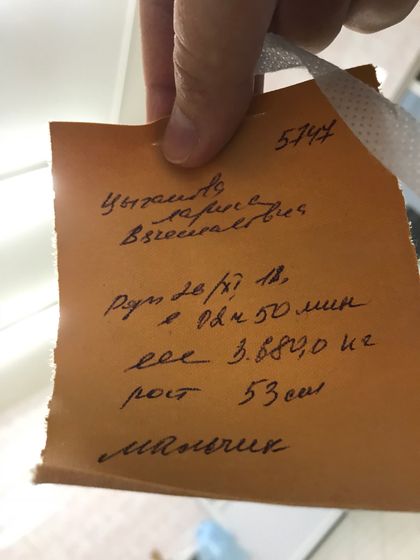 5747
Цыганова
Лариса
Вячеславовна
26/XI, 18,
в 02 ч 50 мин
вес 3.680,0 кг
рост 53 см
мальчик